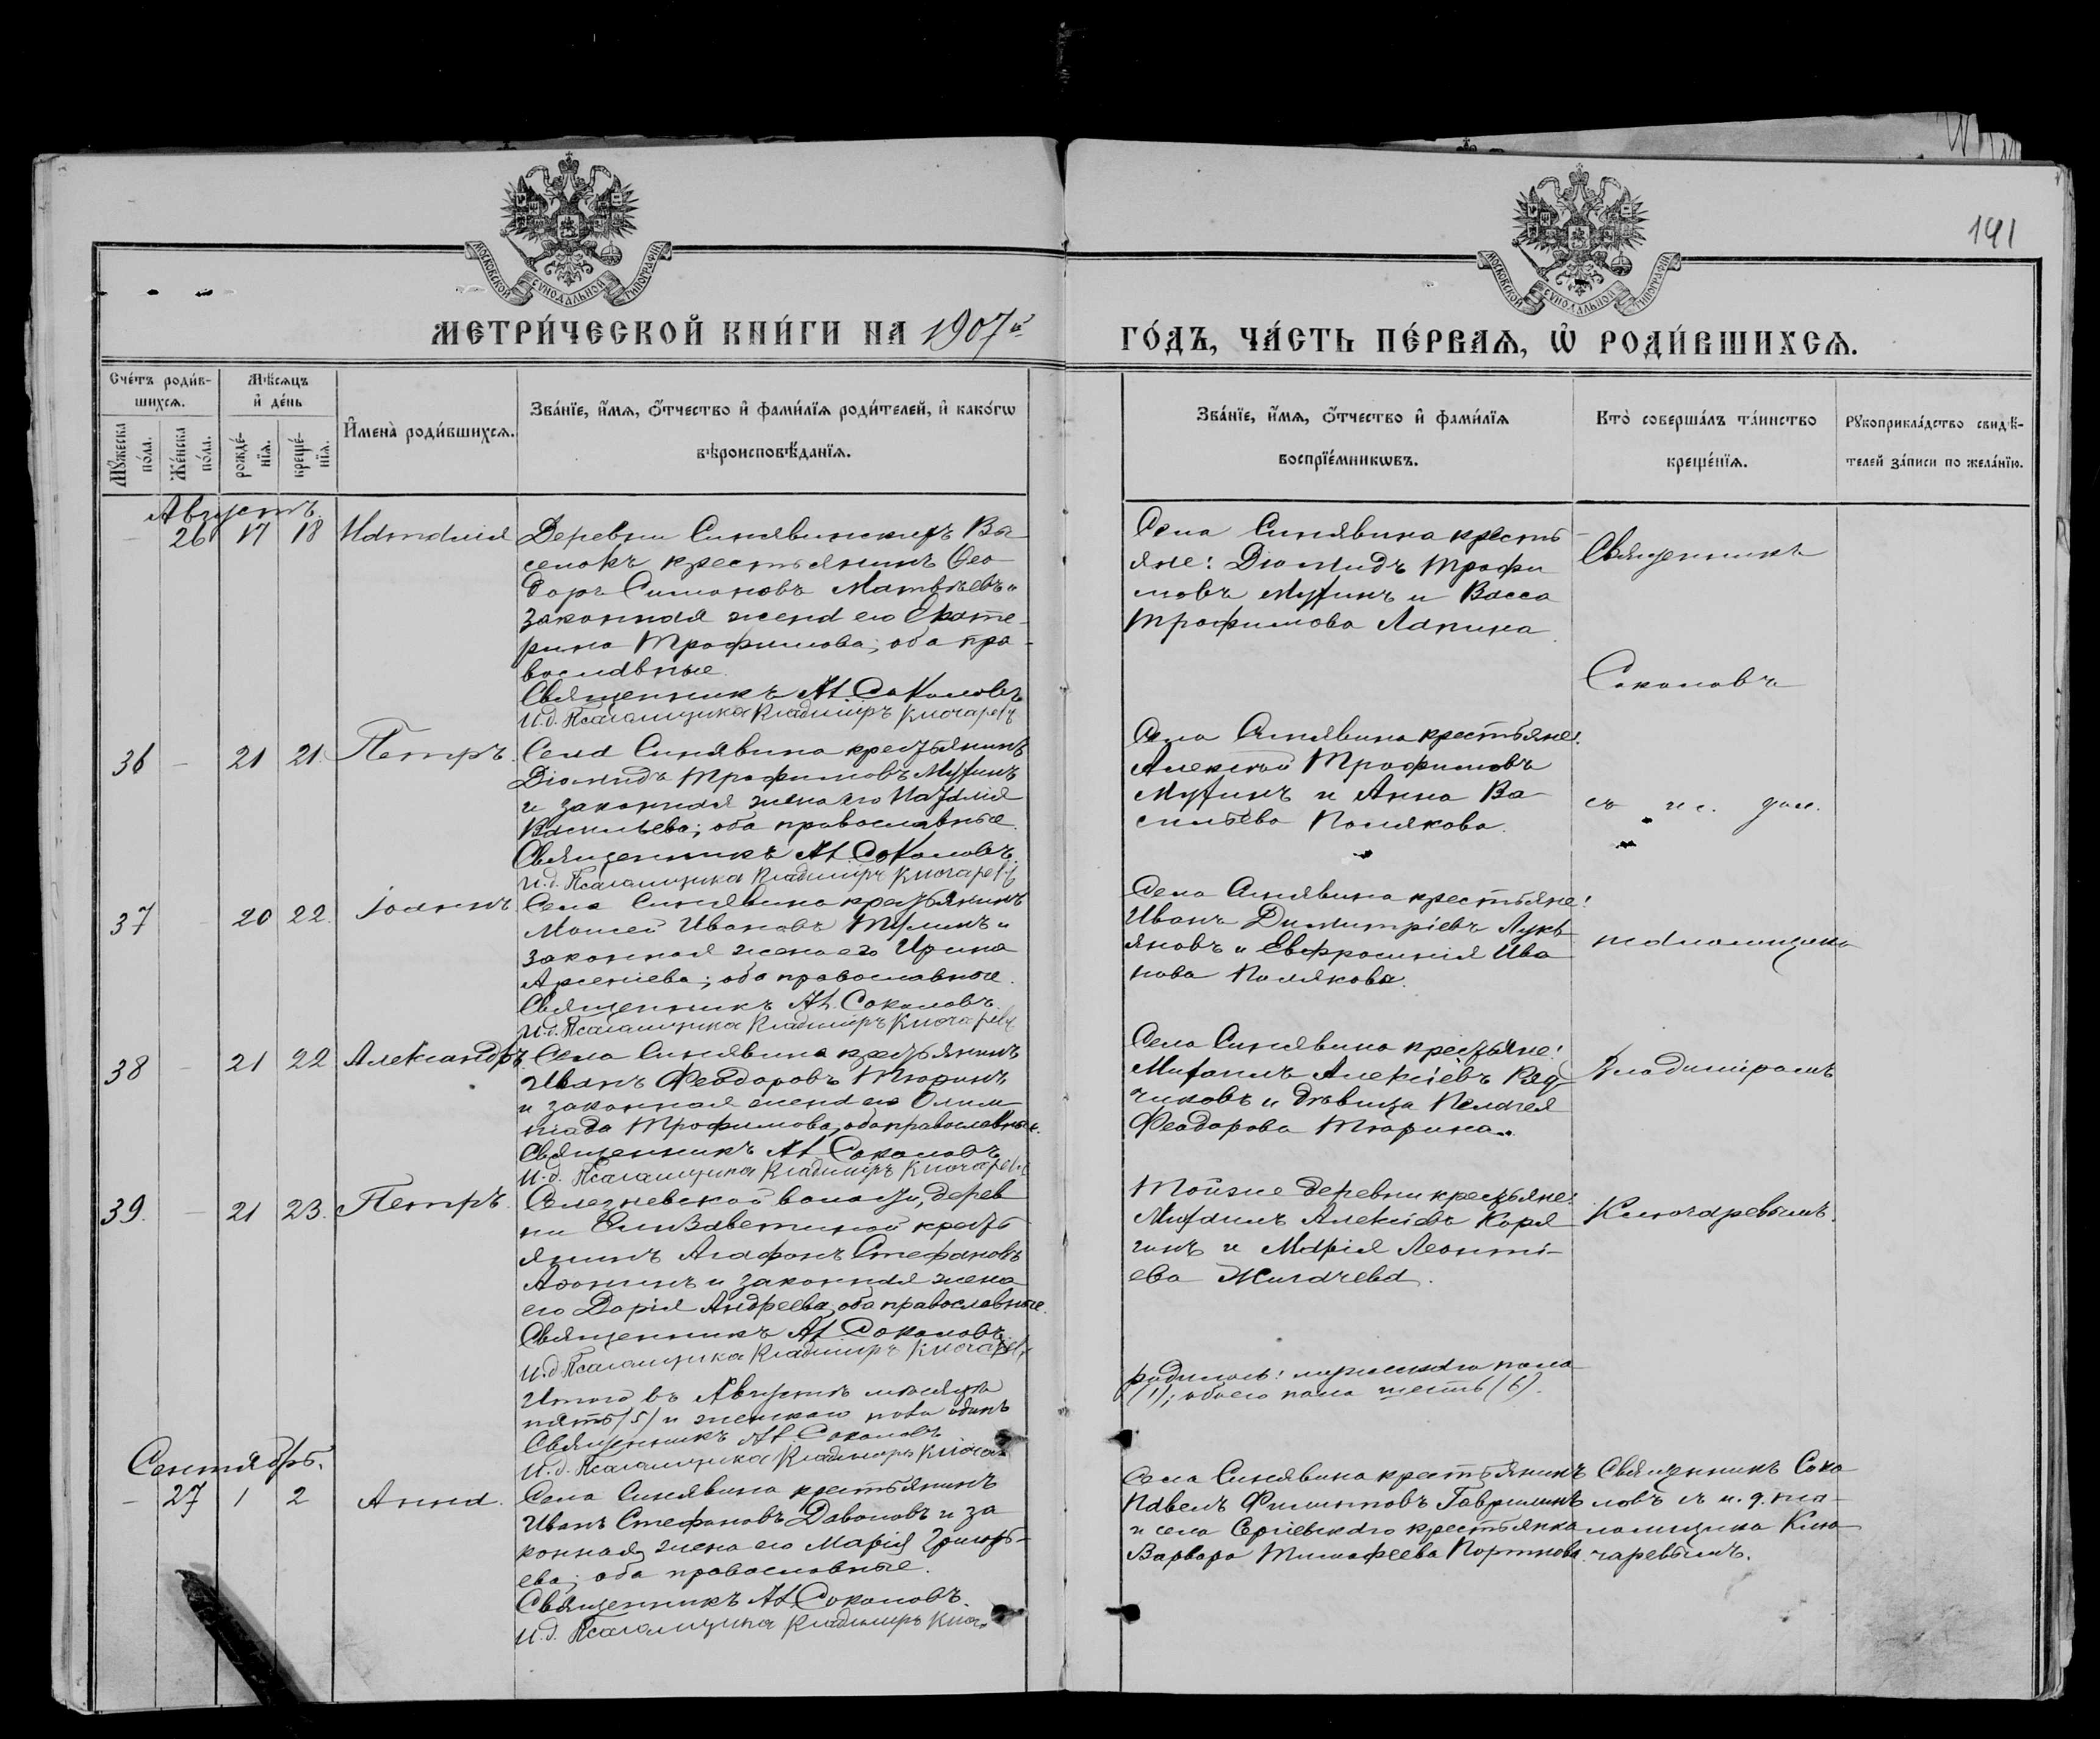 141
МОСКОВСКОЙ СУНОДАЛЬНОЙ ТИПОГРАФІИ
МОСКОВСКОЙ СУНОДАЛЬНОЙ ТИПОГРАФІИ
МЕТРИ́ЧЕСКОЙ КНИ́ГИ НА 1907й
ГО́ДЪ, ЧА́СТЬ ПЕ́РВАѦ, Ѡ҆ РОДИ́ВШИХСѦ.
Сче́тъ роди́в-
шихсѧ.
Мѣ́сѧцъ
и҆ де́нь
Мꙋ́жеска
по́ла.
Же́нска
по́ла.
рожде́-
нїѧ.
креще́-
нїѧ.
И҆мена̀ роди́вшихсѧ.
Зва́нїе, и҆́мѧ, ѻ҆́тчество и҆ фами́лїѧ роди́телей, и҆ како́гѡ
вѣроисповѣ́данїѧ.
Зва́нїе, и҆́мѧ, ѻ҆́тчество и҆ фами́лїѧ
воспрїе́мникѡвъ.
Кто̀ соверша́лъ та́инство
креще́нїѧ.
Рꙋкоприкла́дство свидѣ́-
телей за́писи по жела́нїю.
Августъ.
– 26 17 18 Наталія
Деревни Синявинскихъ Вы-
селокъ крестьянинъ Ѳео-
доръ Симоновъ Матвѣевъ и
законная жена его Екате-
рина Трофимова; оба пра-
вославные.
Священникъ Ал. Соколовъ
И.д. Псаломщика Владиміръ Ключаревъ
Села Синявина кресть-
яне: Діомидъ Трофи
мовъ Мухинъ и Васса
Трофимова Лапина.
Священникъ
Соколовъ
36 – 21 21 Петръ.
Села Синявина крестьянинъ
Діомидъ Трофимовъ Мухинъ
и законная жена его Наталія
Васильева; оба православные.
Священникъ Ал. Соколовъ.
И.д. Псаломщика Владиміръ Ключаревъ
Села Синявина крестьяне:
Алексѣй Трофимовъ
Мухинъ и Анна Ва-
сильева Полякова.
съ ис. дол.
37 – 20 22. Іоаннъ
Села Синявина крестьянинъ
Моисей Ивановъ и
законная жена его Ирина
Арсеніева; оба православные.
Священникъ Ал. Соколовъ.
И.д. Псаломщика Владиміръ Ключаревъ
Села Синявина крестьяне:
Иванъ Димитріевъ Лукь-
яновъ и Евфросинія Ива
нова Полякова.
псаломщика
38 – 21 22 Александръ
Села Синявина крестьянинъ
Иванъ Ѳеодоровъ Тюринъ
и законная жена его Олим
піада Трофимова; оба православные.
Священникъ Ал. Соколовъ
И.д. Псаломщика Владиміръ Ключаревъ
Села Синявина крестьяне:
Михаилъ Алексіевъ Ряд-
чиковъ и дѣвица Пелагея
Ѳеодорова Тюрина.
Владиміромъ
39. – 21 23. Петръ.
Селезневской волости, дерев
ни Елизаветиной кресть
янинъ Агафонъ Стефановъ
Аѳонинъ и законная жена
его Дарія Андреева, оба православные.
Священникъ Ал. Соколовъ.
И.д. Псаломщика Владиміръ Ключаревъ
Той же деревни крестьяне:
Михаилъ Алексіевъ Коря
гинъ и Марія Леонті-
ева Жигачева.
Ключаревымъ.
Итого въ Августѣ мѣсяцѣ
родилось: мужескаго пола
пять (5) и женскаго пола одинъ
(1); обоего пола шесть (6).
Священникъ Ал. Соколовъ
И.д. Псаломщика Владиміръ Ключа
Сентябрь.
– 27 1 2 Анна.
Села Синявина крестьянинъ
Иванъ Стефановъ и за
конная жена его Марія Григорь-
ева; оба православные.
Священникъ Ал. Соколовъ.
И.д. Псаломщика Владиміръ Ключ.
Села Синявина крестьянинъ
Павелъ Филиповъ Гаврилинъ
и села Сергіевскаго крестьянка
Варвара Тимофеева Портнова.
Священникъ Соко
ловъ съ и. д. пса-
ломщика Клю
чаревымъ.